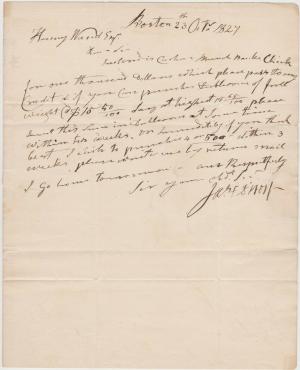 Boston 23th Octr 1827
Henry Wood Esq
Dear Sir
Enclosed is Cashier Branch Bank Check
for one thousand Dollars which please pass to my
Credit & if you can purchase Doubloons of full
weight @ $15 50/100 Say at highest 15 55/100 please
invest this Sum in Doubloons at some time
within two weeks. or immediately if you think
best I wish to purchase 4 or 500 within 3
weeks, please write me by return mail
I go home tomorrow
and Respectfully
Sir your Obt Ser